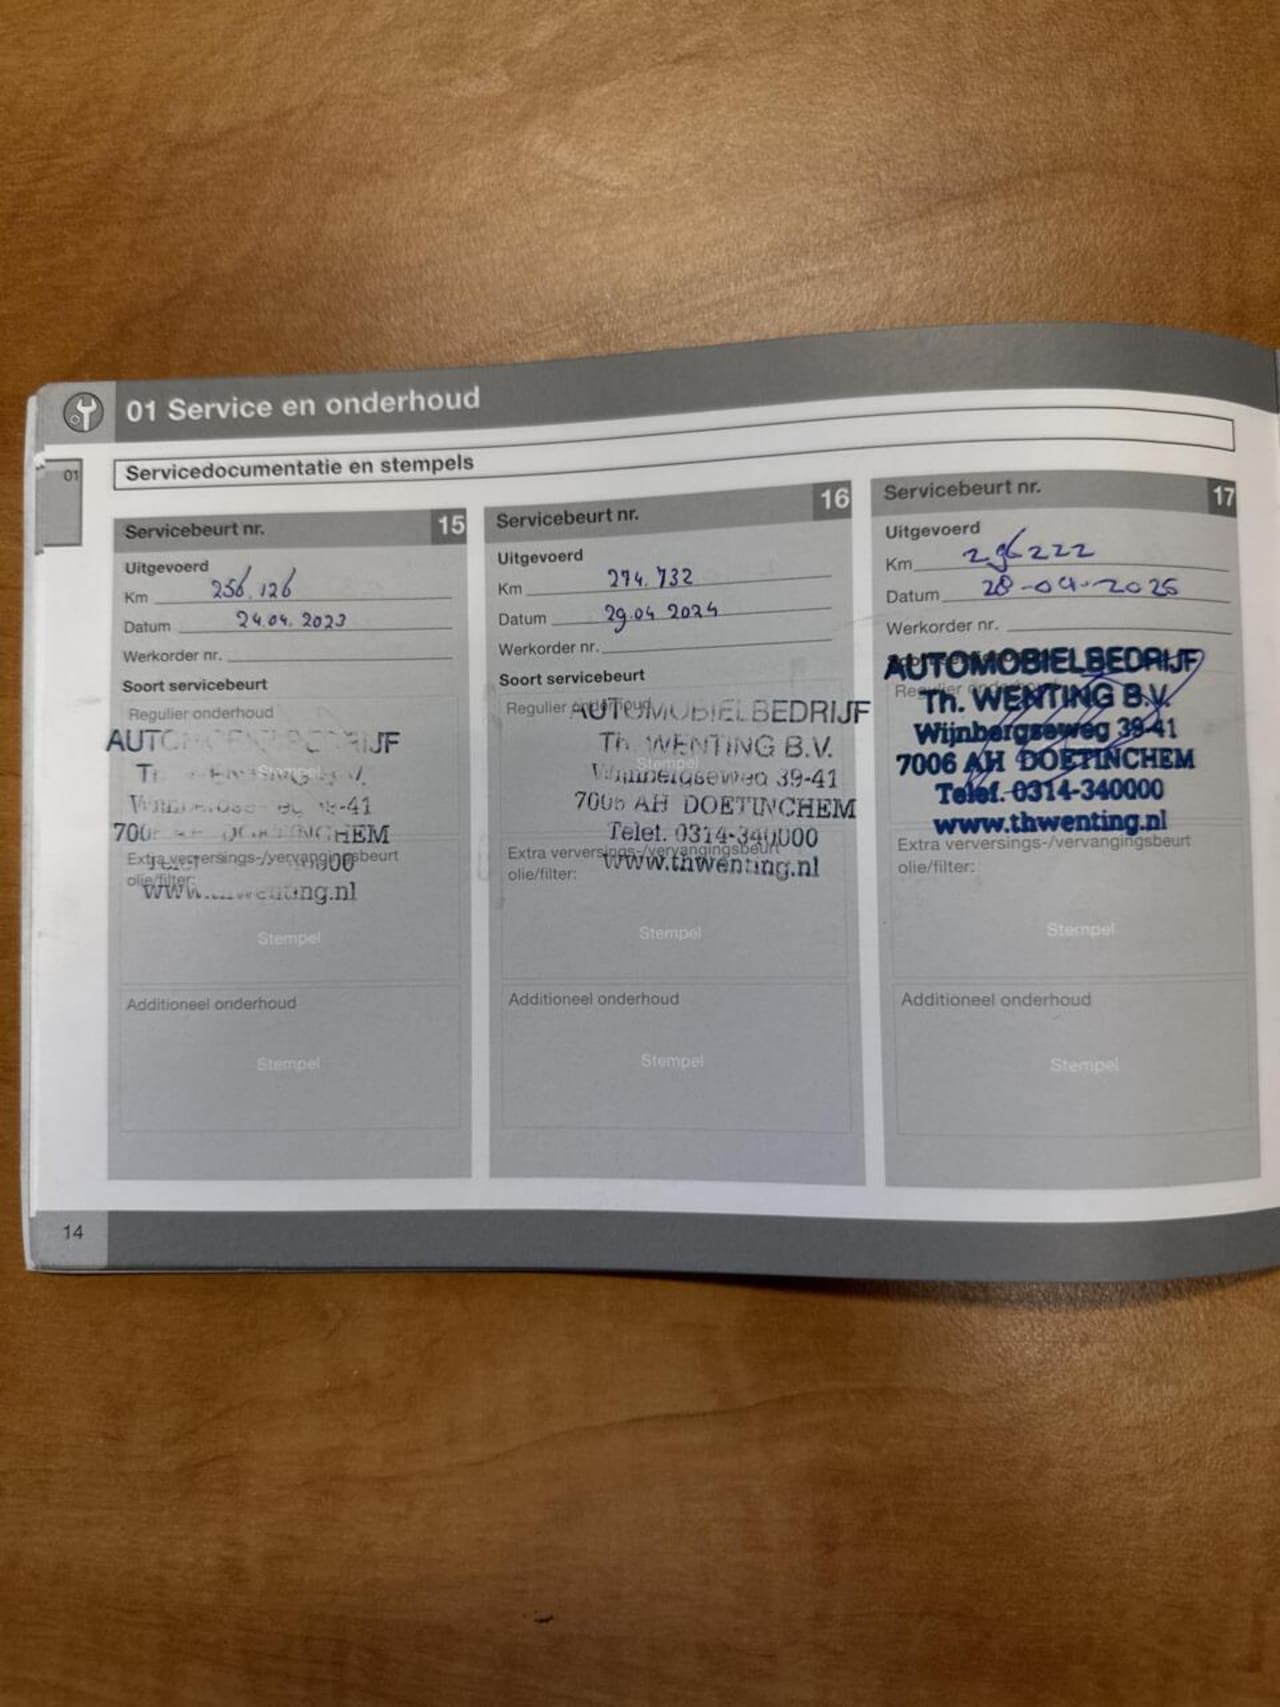 01 Service en onderhoud
01
Servicedocumentatie en stempels
Servicebeurt nr. 15
Uitgevoerd
Km 256.126
Datum 24.04.2023
Werkorder nr.
Soort servicebeurt
Regulier onderhoud
Stempel
Extra verversings-/vervangingsbeurt
olie/filter:
Stempel
Additioneel onderhoud
Stempel
Servicebeurt nr. 16
Uitgevoerd
Km 274.732
Datum 29.04 2024
Werkorder nr.
Soort servicebeurt
Regulier onderhoud
AUTOMOBIELBEDRIJF
Th. WENTING B.V.
Stempel
Wijnbergseweg 39-41
7006 AH DOETINCHEM
Telef. 0314-340000
Extra verversings-/vervangingsbeurt
www.thwenting.nl
olie/filter:
Stempel
Additioneel onderhoud
Stempel
Servicebeurt nr. 17
Uitgevoerd
Km 296222
Datum 28-04-2025
Werkorder nr.
AUTOMOBIELBEDRIJF
Regulier onderhoud
Th. WENTING B.V.
Wijnbergseweg 39-41
7006 AH DOETINCHEM
Telef. 0314-340000
www.thwenting.nl
Extra verversings-/vervangingsbeurt
olie/filter:
Stempel
Additioneel onderhoud
Stempel
14